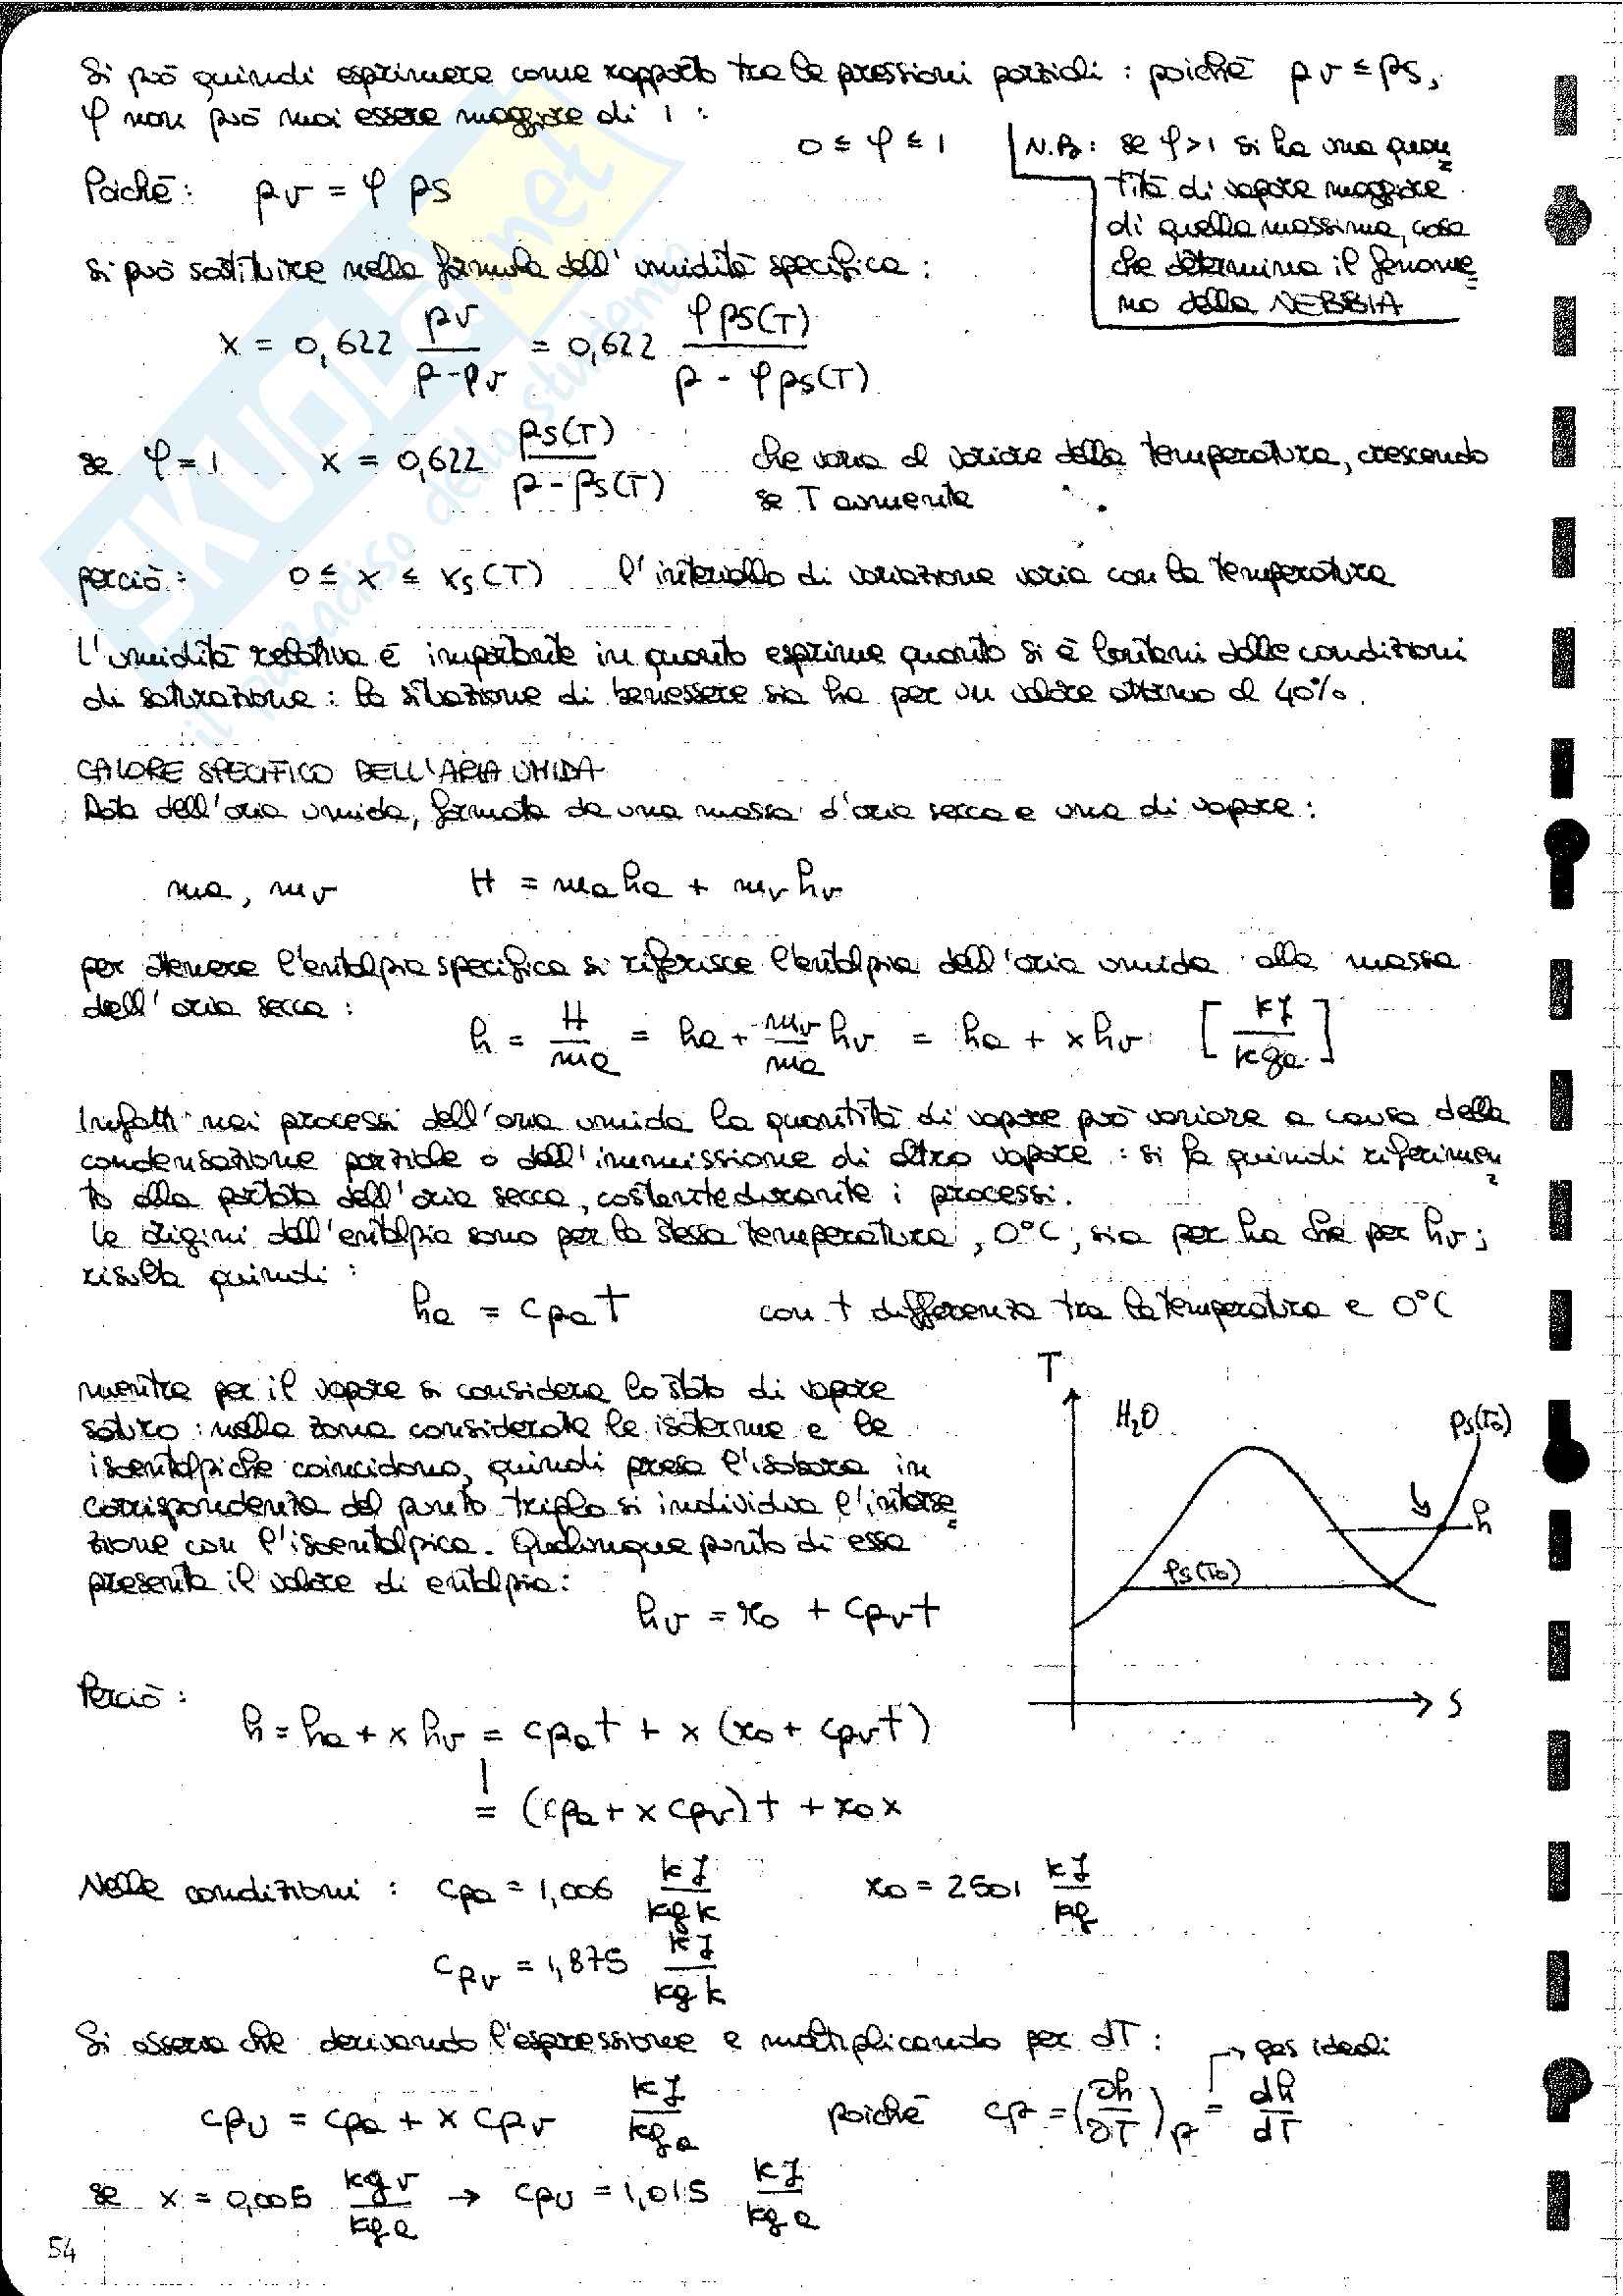 Si può quindi esprimere come rapporto tra le pressioni parziali : poiché pv ≤ ps,
φ non può mai essere maggiore di 1 :
0 ≤ φ ≤ 1
N.B: se φ>1 si ha una quan
tità di vapore maggiore
di quella massima, cosa
che determina il fenome
no della NEBBIA
Poiché: pv = φ ps
si può sostituire nella formula dell'umidità specifica :
x = 0,622 pv/(p-pv) = 0,622 φps(T)/(p - φps(T))
se φ=1 x = 0,622 ps(T)/(p-ps(T)) che varia al variare della temperatura, crescendo
se T aumenta
perciò: 0 ≤ x ≤ xs(T) l'intervallo di variazione varia con la temperatura
L'umidità relativa è importante in quanto esprime quanto si è lontani dalle condizioni
di saturazione : la situazione di benessere sia ha per un valore attorno al 40%.
CALORE SPECIFICO DELL'ARIA UMIDA
Data dell'aria umida, formata da una massa d'aria secca e una di vapore :
ma, mv H = ma ha + mv hv
per ottenere l'entalpia specifica si riferisce l'entalpia dell'aria umida alla massa
dell'aria secca :
h = H/ma = ha + mv/ma hv = ha + x hv [kJ/kga]
Infatti nei processi dell'aria umida la quantità di vapore può variare a causa della
condensazione parziale o dell'immissione di altro vapore : si fa quindi riferimen
to alla portata dell'aria secca, costante durante i processi.
Le origini dell'entalpia sono per la stessa temperatura, 0°C, sia per ha che per hv;
risulta quindi :
ha = cpa t con t differenza tra la temperatura e 0°C
mentre per il vapore si considera lo stato di vapore
saturo : nella zona considerata le isoterme e le
isoentalpiche coincidono, quindi presa l'isobara in
corrispondenza del punto triplo si individua l'interse
zione con l'isoentalpica. Qualunque punto di essa
presenta il valore di entalpia:
hv = r0 + cpv t
T
H2O
ps(T0)
h
ps(T0)
S
Perciò :
h = ha + x hv = cpa t + x (r0 + cpv t)
= (cpa + x cpv) t + r0 x
Nelle condizioni : cpa = 1,006 kJ/kg k r0 = 2501 kJ/kg
cpv = 1,875 kJ/kg k
Si osserva che derivando l'espressione e moltiplicando per dT :
→ gas ideali
cpu = cpa + x cpv kJ/kga poiché cp = (∂h/∂T)p = dh/dT
se x = 0,005 kgv/kga → cpu = 1,015 kJ/kga
54
SKUOLA.net
il paradiso dello studente